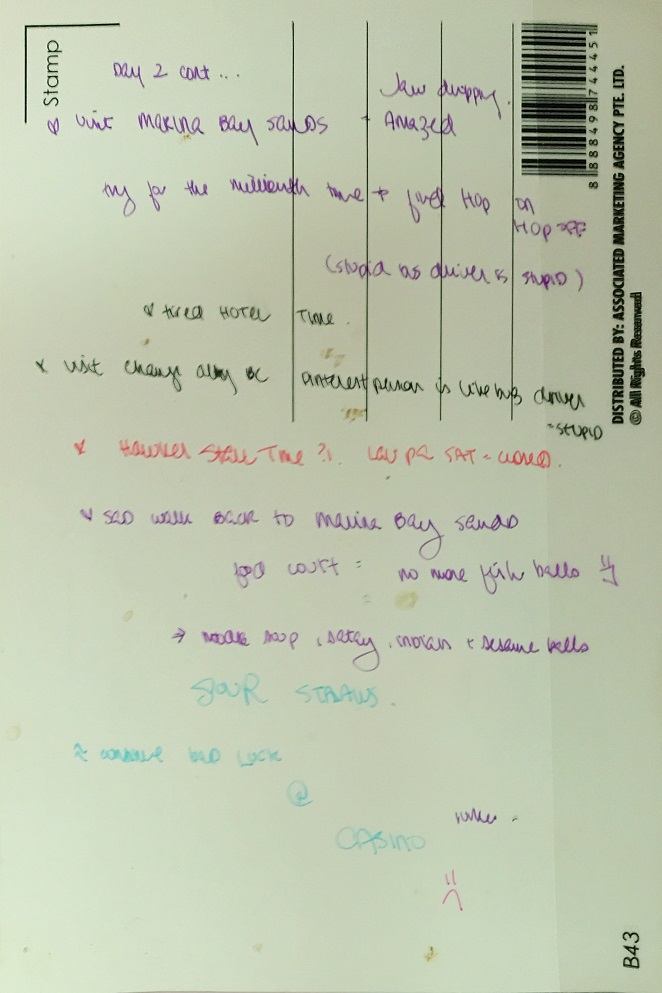 Stamp
Day 2 cont...
Jaw dropping.
visit Marina Bay Sands - Amazed
try for the millionth time + find Hop on
Hop off
(stupid as driver is stupid)
x tired HOTEL Time.
x visit change alley
person is like bus driver
= STUPID
x Hawker Stall Time?! Lau pa SAT = closed.
sad walk back to Marina Bay Sands
food court = no more fish balls
→ noodle soup, satay, indian + sesame balls
SOUR STRAWS.
continue bad luck
@
CASINO
8 888498 744451
DISTRIBUTED BY: ASSOCIATED MARKETING AGENCY PTE. LTD.
© All Rights Reserved
B43